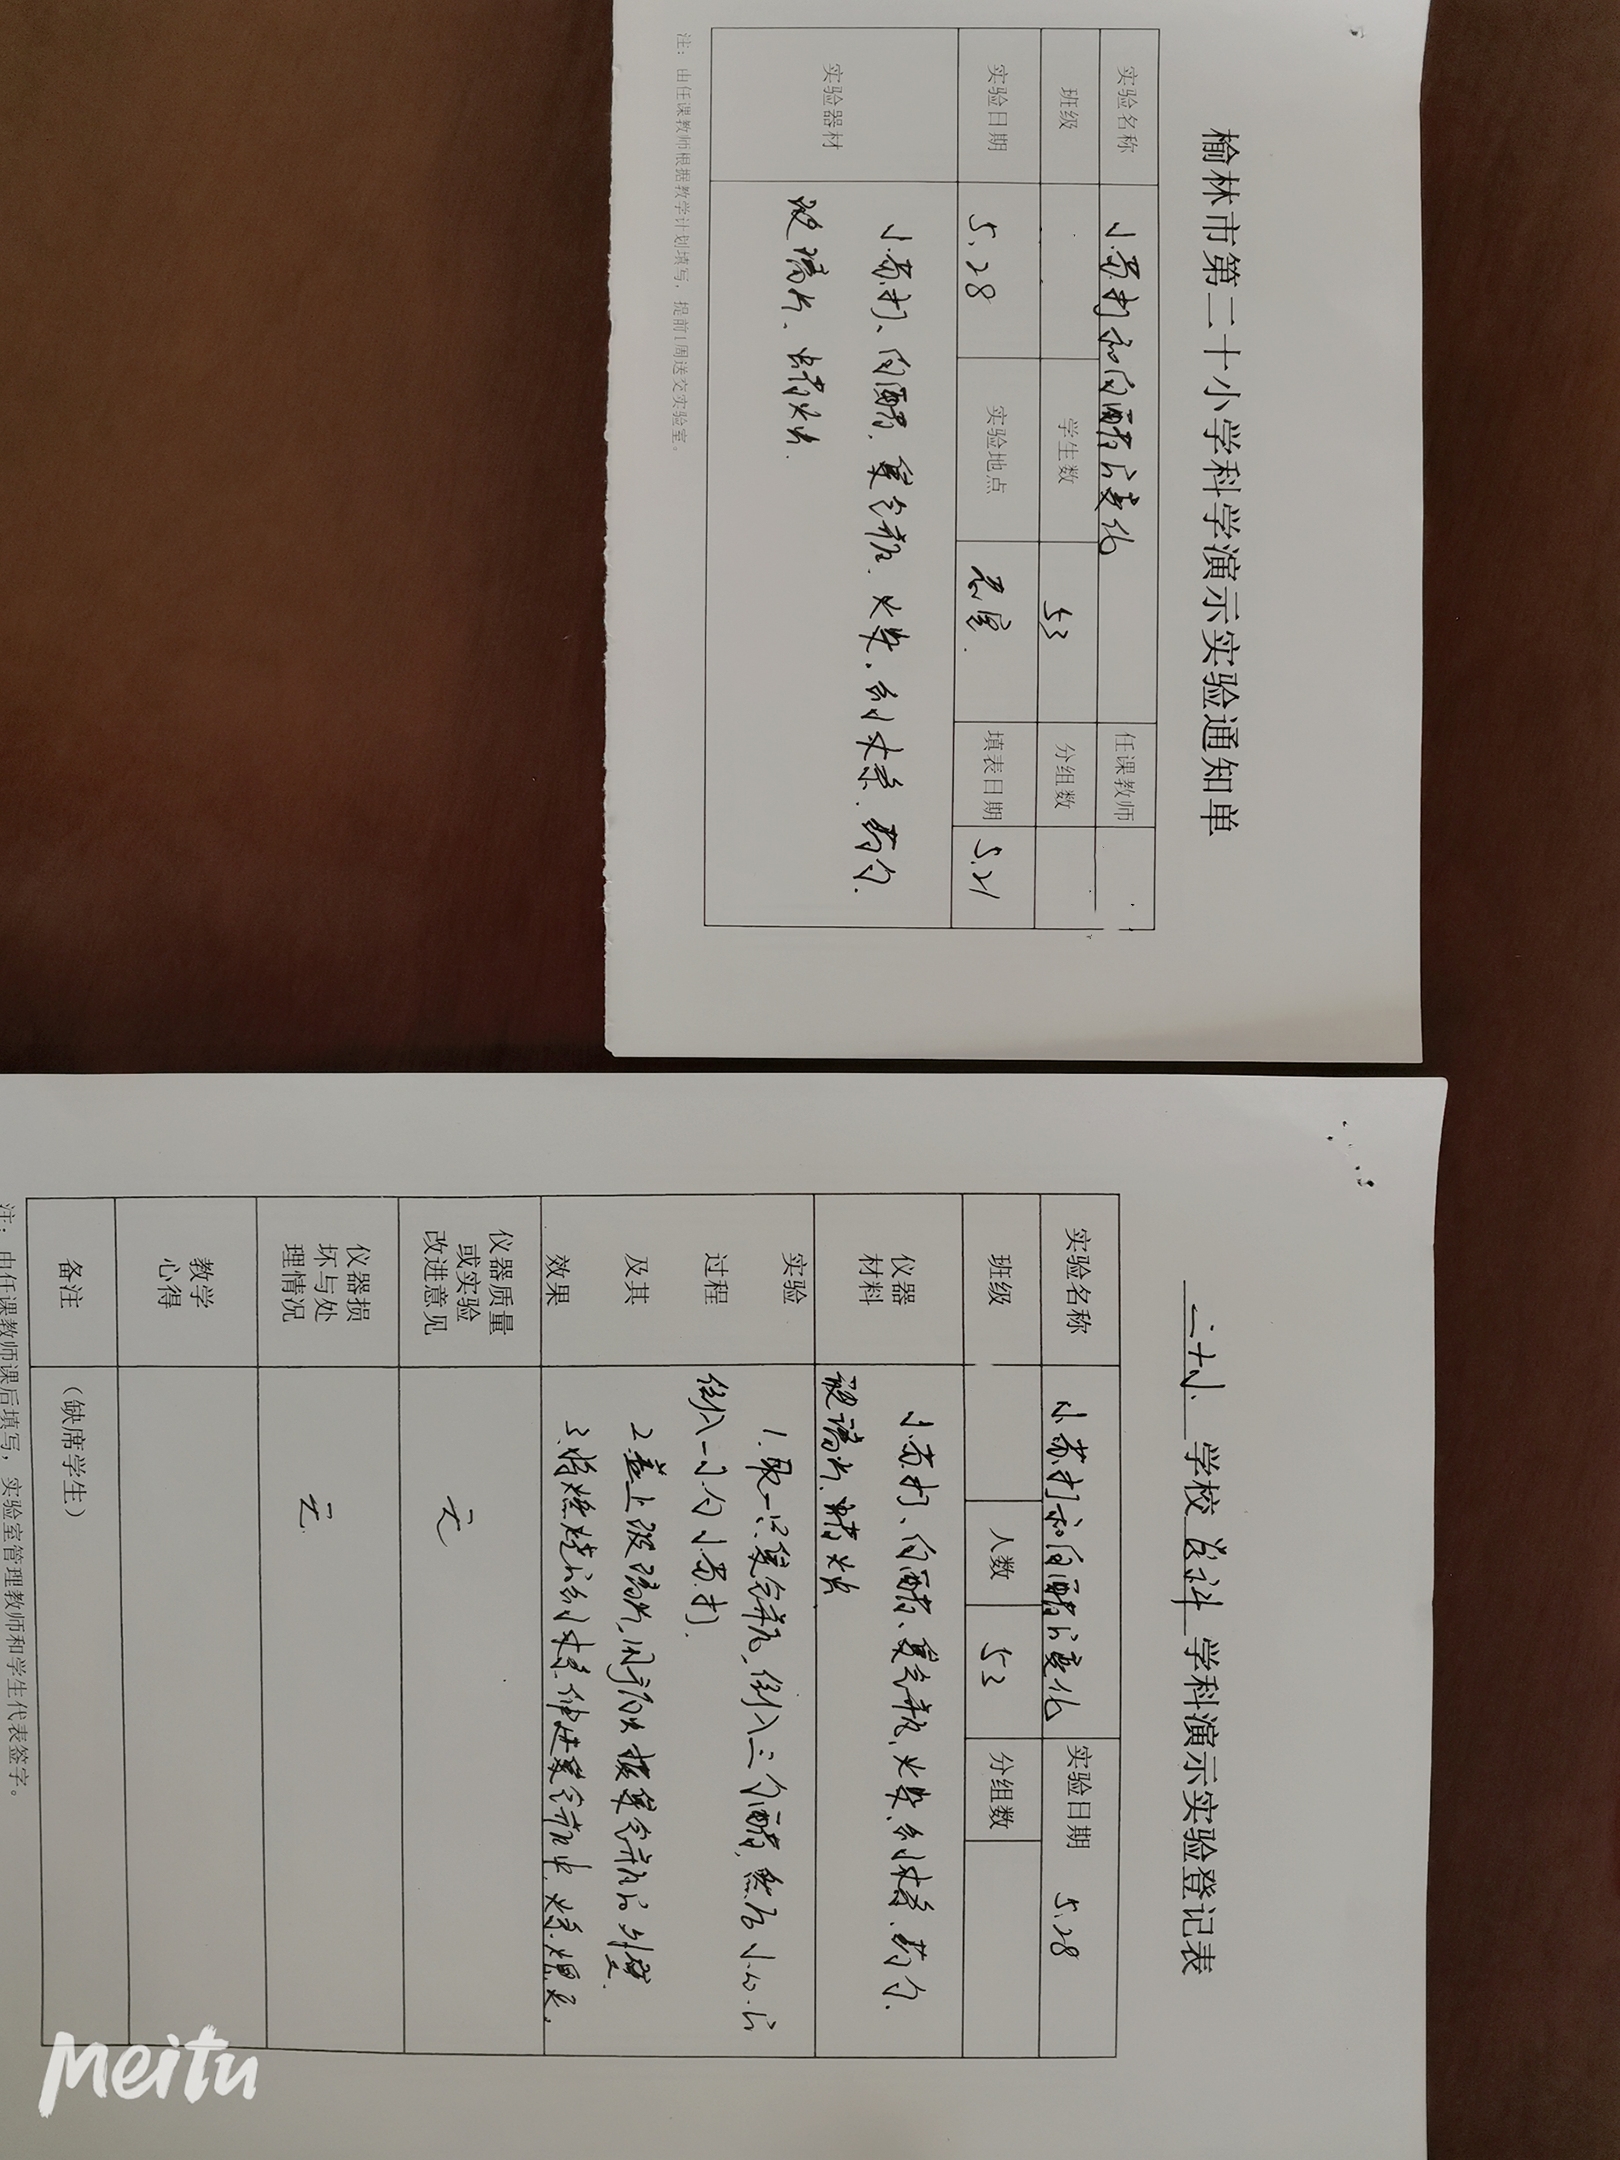 榆林市第二十小学科学演示实验通知单
实验名称 小苏打和白醋的变化 任课教师
班级 学生数 53 分组数
实验日期 5.28 实验地点 填表日期 5.21
实验器材
小苏打、白醋、集气瓶、火柴、细木条、药勺、
玻璃片、蜡烛火
注：由任课教师根据教学计划填写，提前1周送交实验室。
二十小 学校 学科演示实验登记表
实验名称 小苏打和白醋的变化 实验日期 5.28
班级 人数 53 分组数
仪器
材料
小苏打、白醋、集气瓶、火柴、细木条、药勺、
玻璃片、
实验
过程
及其
效果
1.取一只集气瓶，倒入三勺醋，然后小心的
倒入一小勺小苏打.
2.盖上玻璃片，用手触摸集气瓶的外壁.
3.将燃烧的细木条伸进集气瓶中，火条熄灭.
仪器质量
或实验
改进意见
无
仪器损
坏与处
理情况
无
教学
心得
备注 （缺席学生）
注：由任课教师课后填写，实验室管理教师和学生代表签字。
Meitu